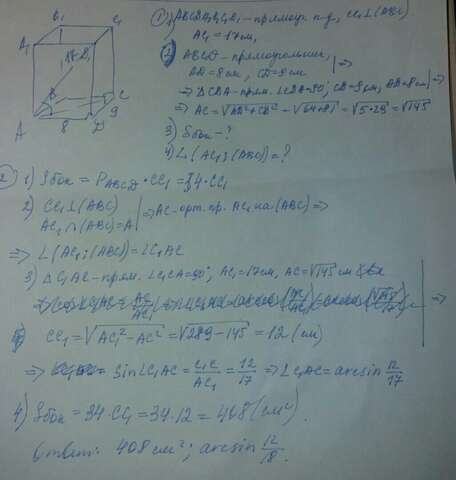 B₁ C₁
A₁ D₁
17
B C
9
A 8 D
① 1) ABCDA₁B₁C₁D₁ - прямоуг. п-д, CC₁⊥(ABC)
AC₁ = 17см,
2) ABCD - прямоугольник,
AD = 8см, CD = 9см | ⇒
⇒ △CDA - прям. ∠CDA = 90°; CD = 9см, AD = 8см | ⇒
⇒ AC = √AD²+CD² = √64+81 = √5·29 = √145
3) Sбок - ?
4) ∠(AC₁; (ABC)) = ?
2 1) Sбок = P_ABCD · CC₁ = 34·CC₁
2) CC₁⊥(ABC)
AC₁∩(ABC) = A | ⇒ AC - орт. пр. AC₁ на (ABC) ⇒
⇒ ∠(AC₁; (ABC)) = ∠C₁AC
3) △C₁AC - прям. ∠C₁CA = 90°, AC₁ = 17см, AC = √145 см
CC₁ = √AC₁² - AC² = √289 - 145 = 12 (см) | ⇒
⇒ sin∠C₁AC = C₁C/AC₁ = 12/17 ⇒ ∠C₁AC = arcsin 12/17
4) Sбок = 34·CC₁ = 34·12 = 408 (см²).
Ответ: 408 см²; arcsin 12/18.